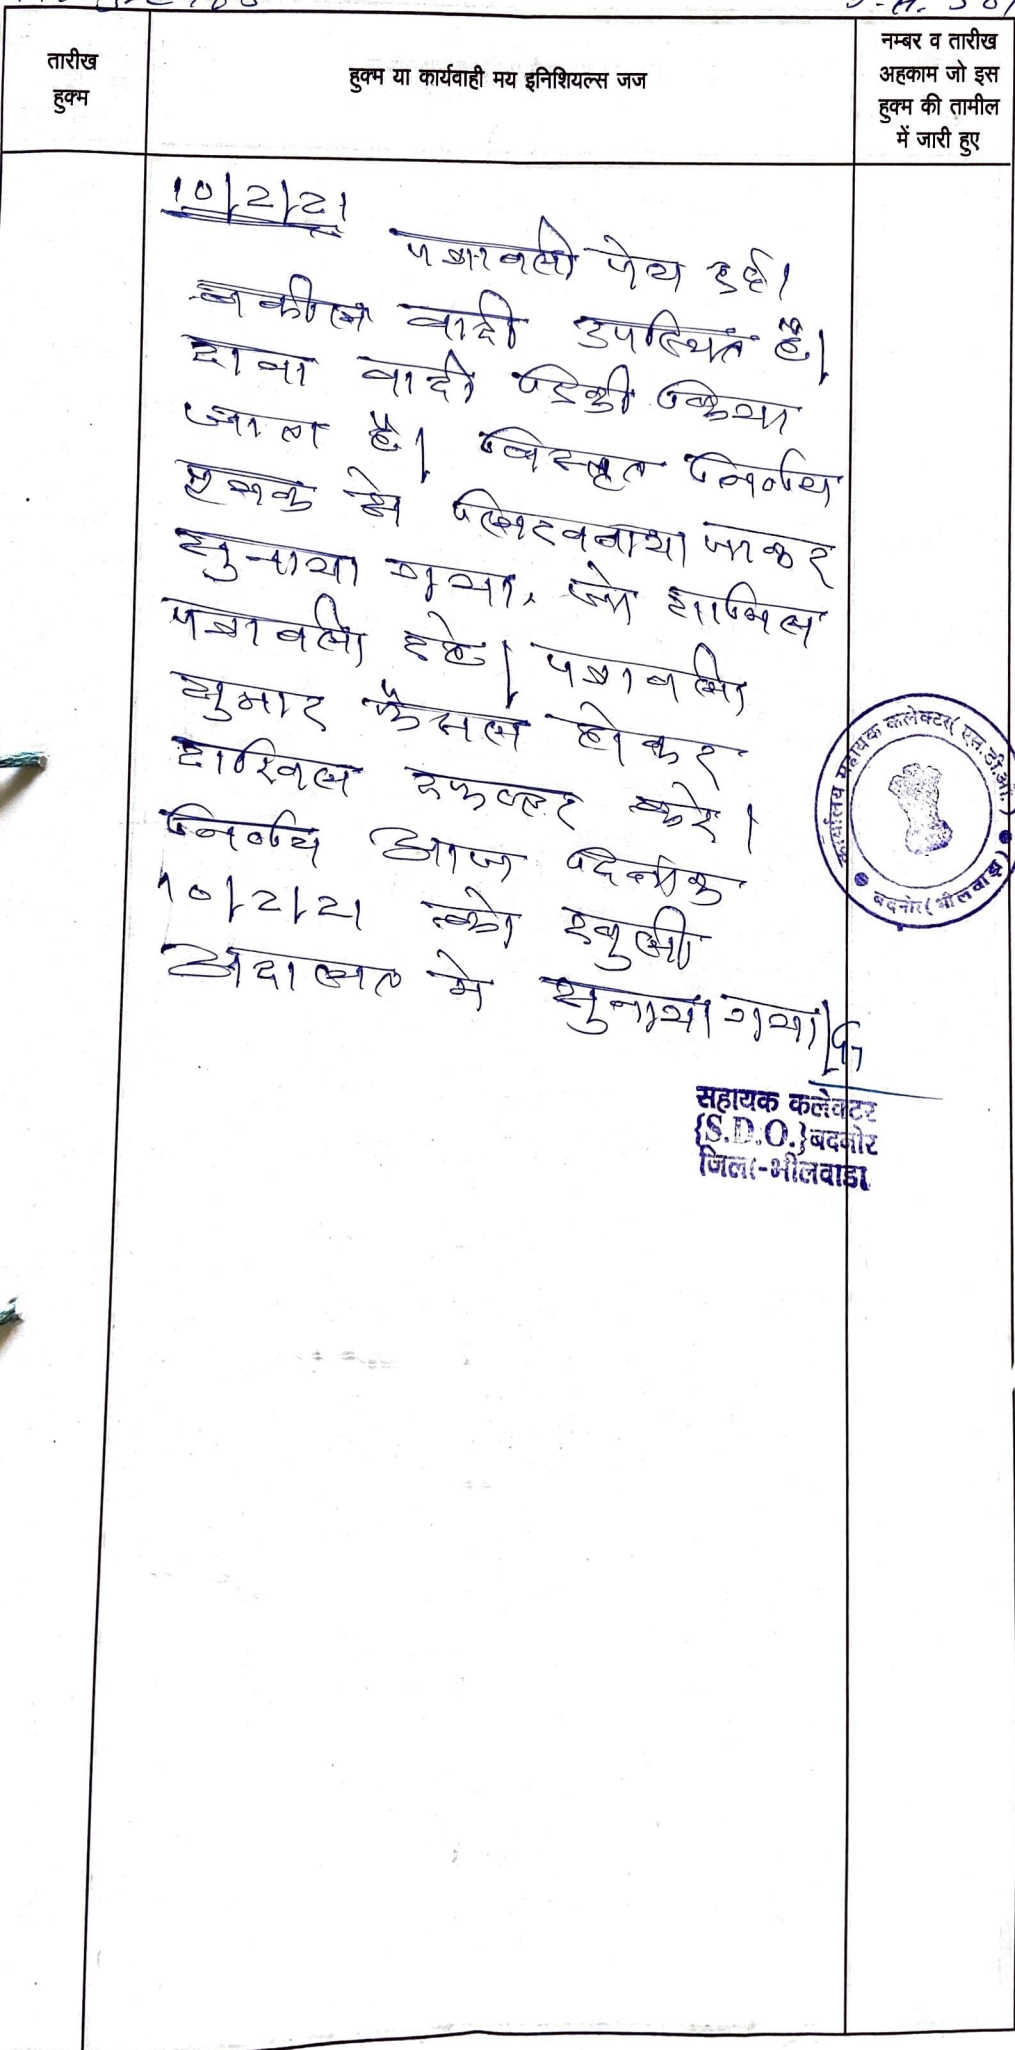 तारीख
हुक्म
हुक्म या कार्यवाही मय इनिशियल्स जज
नम्बर व तारीख
अहकाम जो इस
हुक्म की तामील
में जारी हुए
10/2/21
पत्रावली पेश हुई।
वकील वादी उपस्थित है।
दावा वादी डिक्री किया
जाता है। विस्तृत निर्णय
पृथक से लिखवाया जाकर
सुनाया गया, जो शामिल
पत्रावली रहे। पत्रावली
शुमार फैसल होकर
दाखिल दफ्तर करे।
निर्णय आज दिनांक
10/2/21 को खुली
अदालत मे सुनाया गया।
कार्यालय सहायक कलेक्टर (एस.डी.ओ.)
बदनोर (भीलवाड़ा)
सहायक कलेक्टर
{S.D.O.} बदनोर
जिला-भीलवाडा